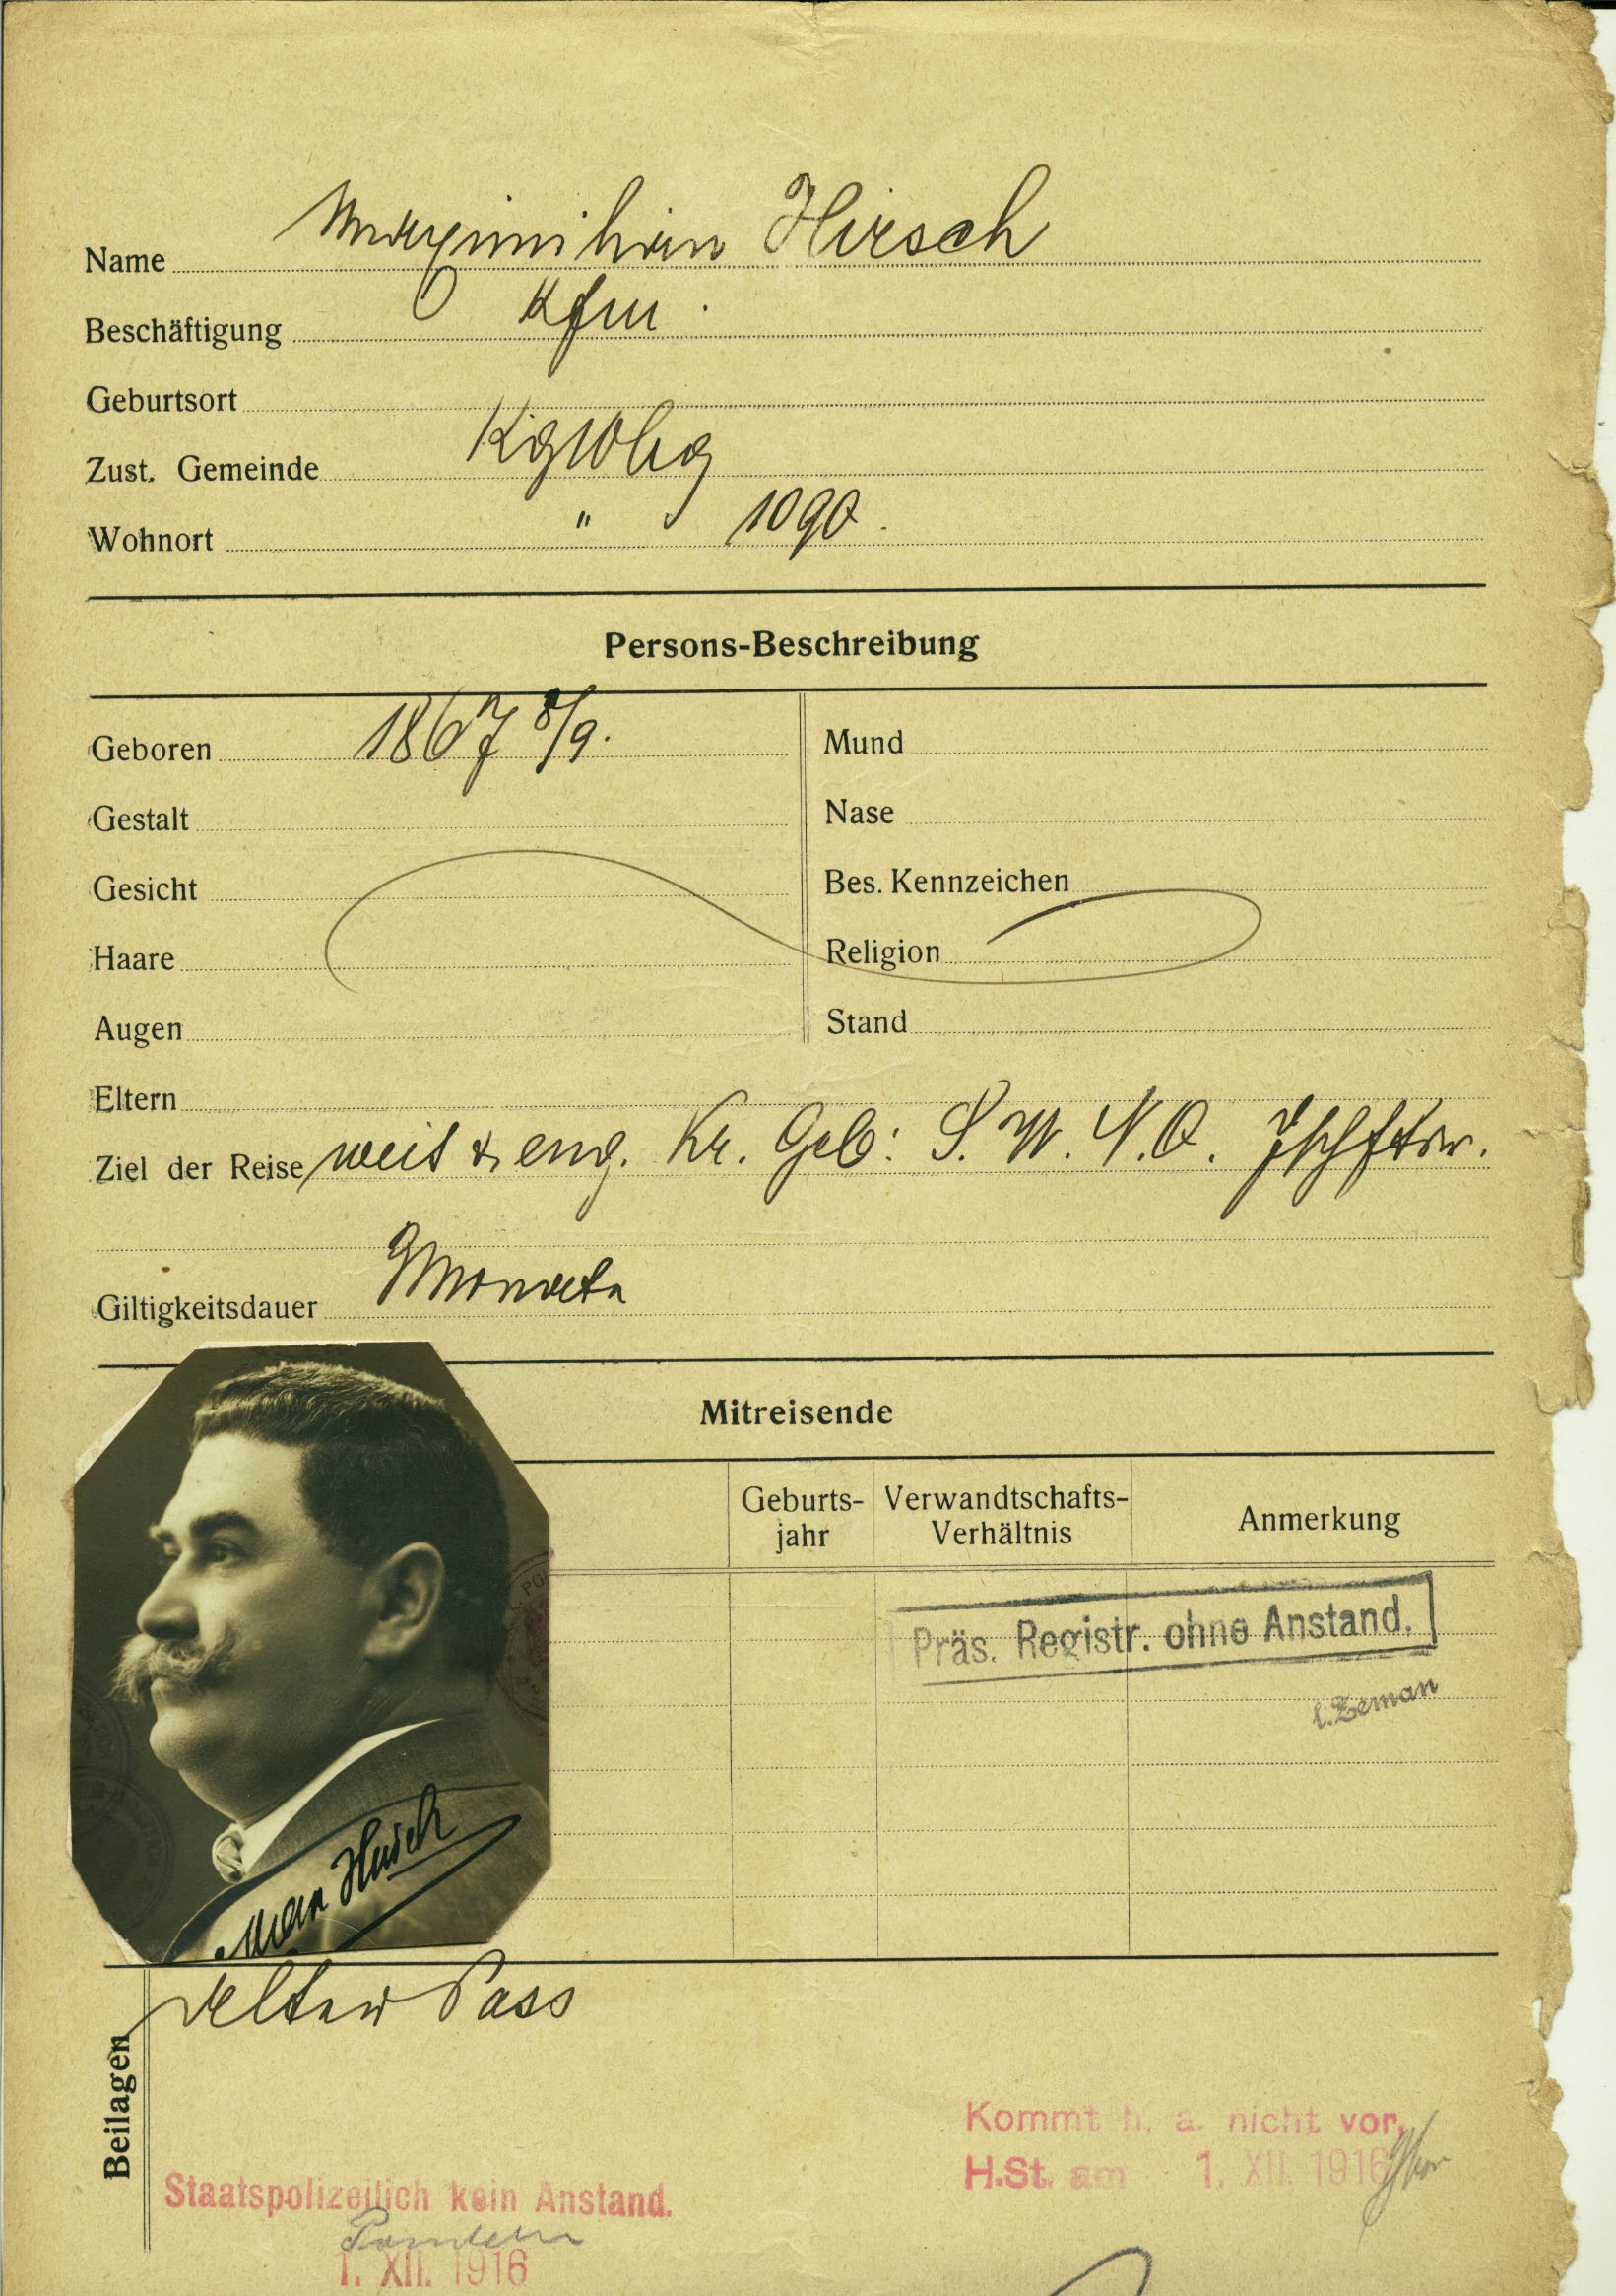 Name Maximilian Hirsch
Beschäftigung Kfm.
Geburtsort
Zust. Gemeinde KglWbg
Wohnort " 1090.
Persons-Beschreibung
Geboren 1867 8/9.
Gestalt
Gesicht
Haare
Augen
Mund
Nase
Bes. Kennzeichen
Religion
Stand
Eltern
Ziel der Reise weit & eng. Kr. Geb: S. W. N. O.
Giltigkeitsdauer Monate
Mitreisende
Geburts-
jahr
Verwandtschafts-
Verhältnis
Anmerkung
Präs. Registr. ohne Anstand.
Zeman
Max Hirsch
Beilagen alter Pass
Kommt h. a. nicht vor,
H.St. am 1. XII. 1916
Staatspolizeilich kein Anstand.
1. XII. 1916